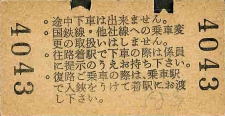 4043
。途中下車は出来ません。
。国鉄線・他社線への乗車変
更の取扱いはしません。
。往路着駅で下車の際は係員
に提示のうえお持ち下さい。
。復路ご乗車の際は、乗車駅
で入鋏をうけて着駅にお渡
し下さい。
4043